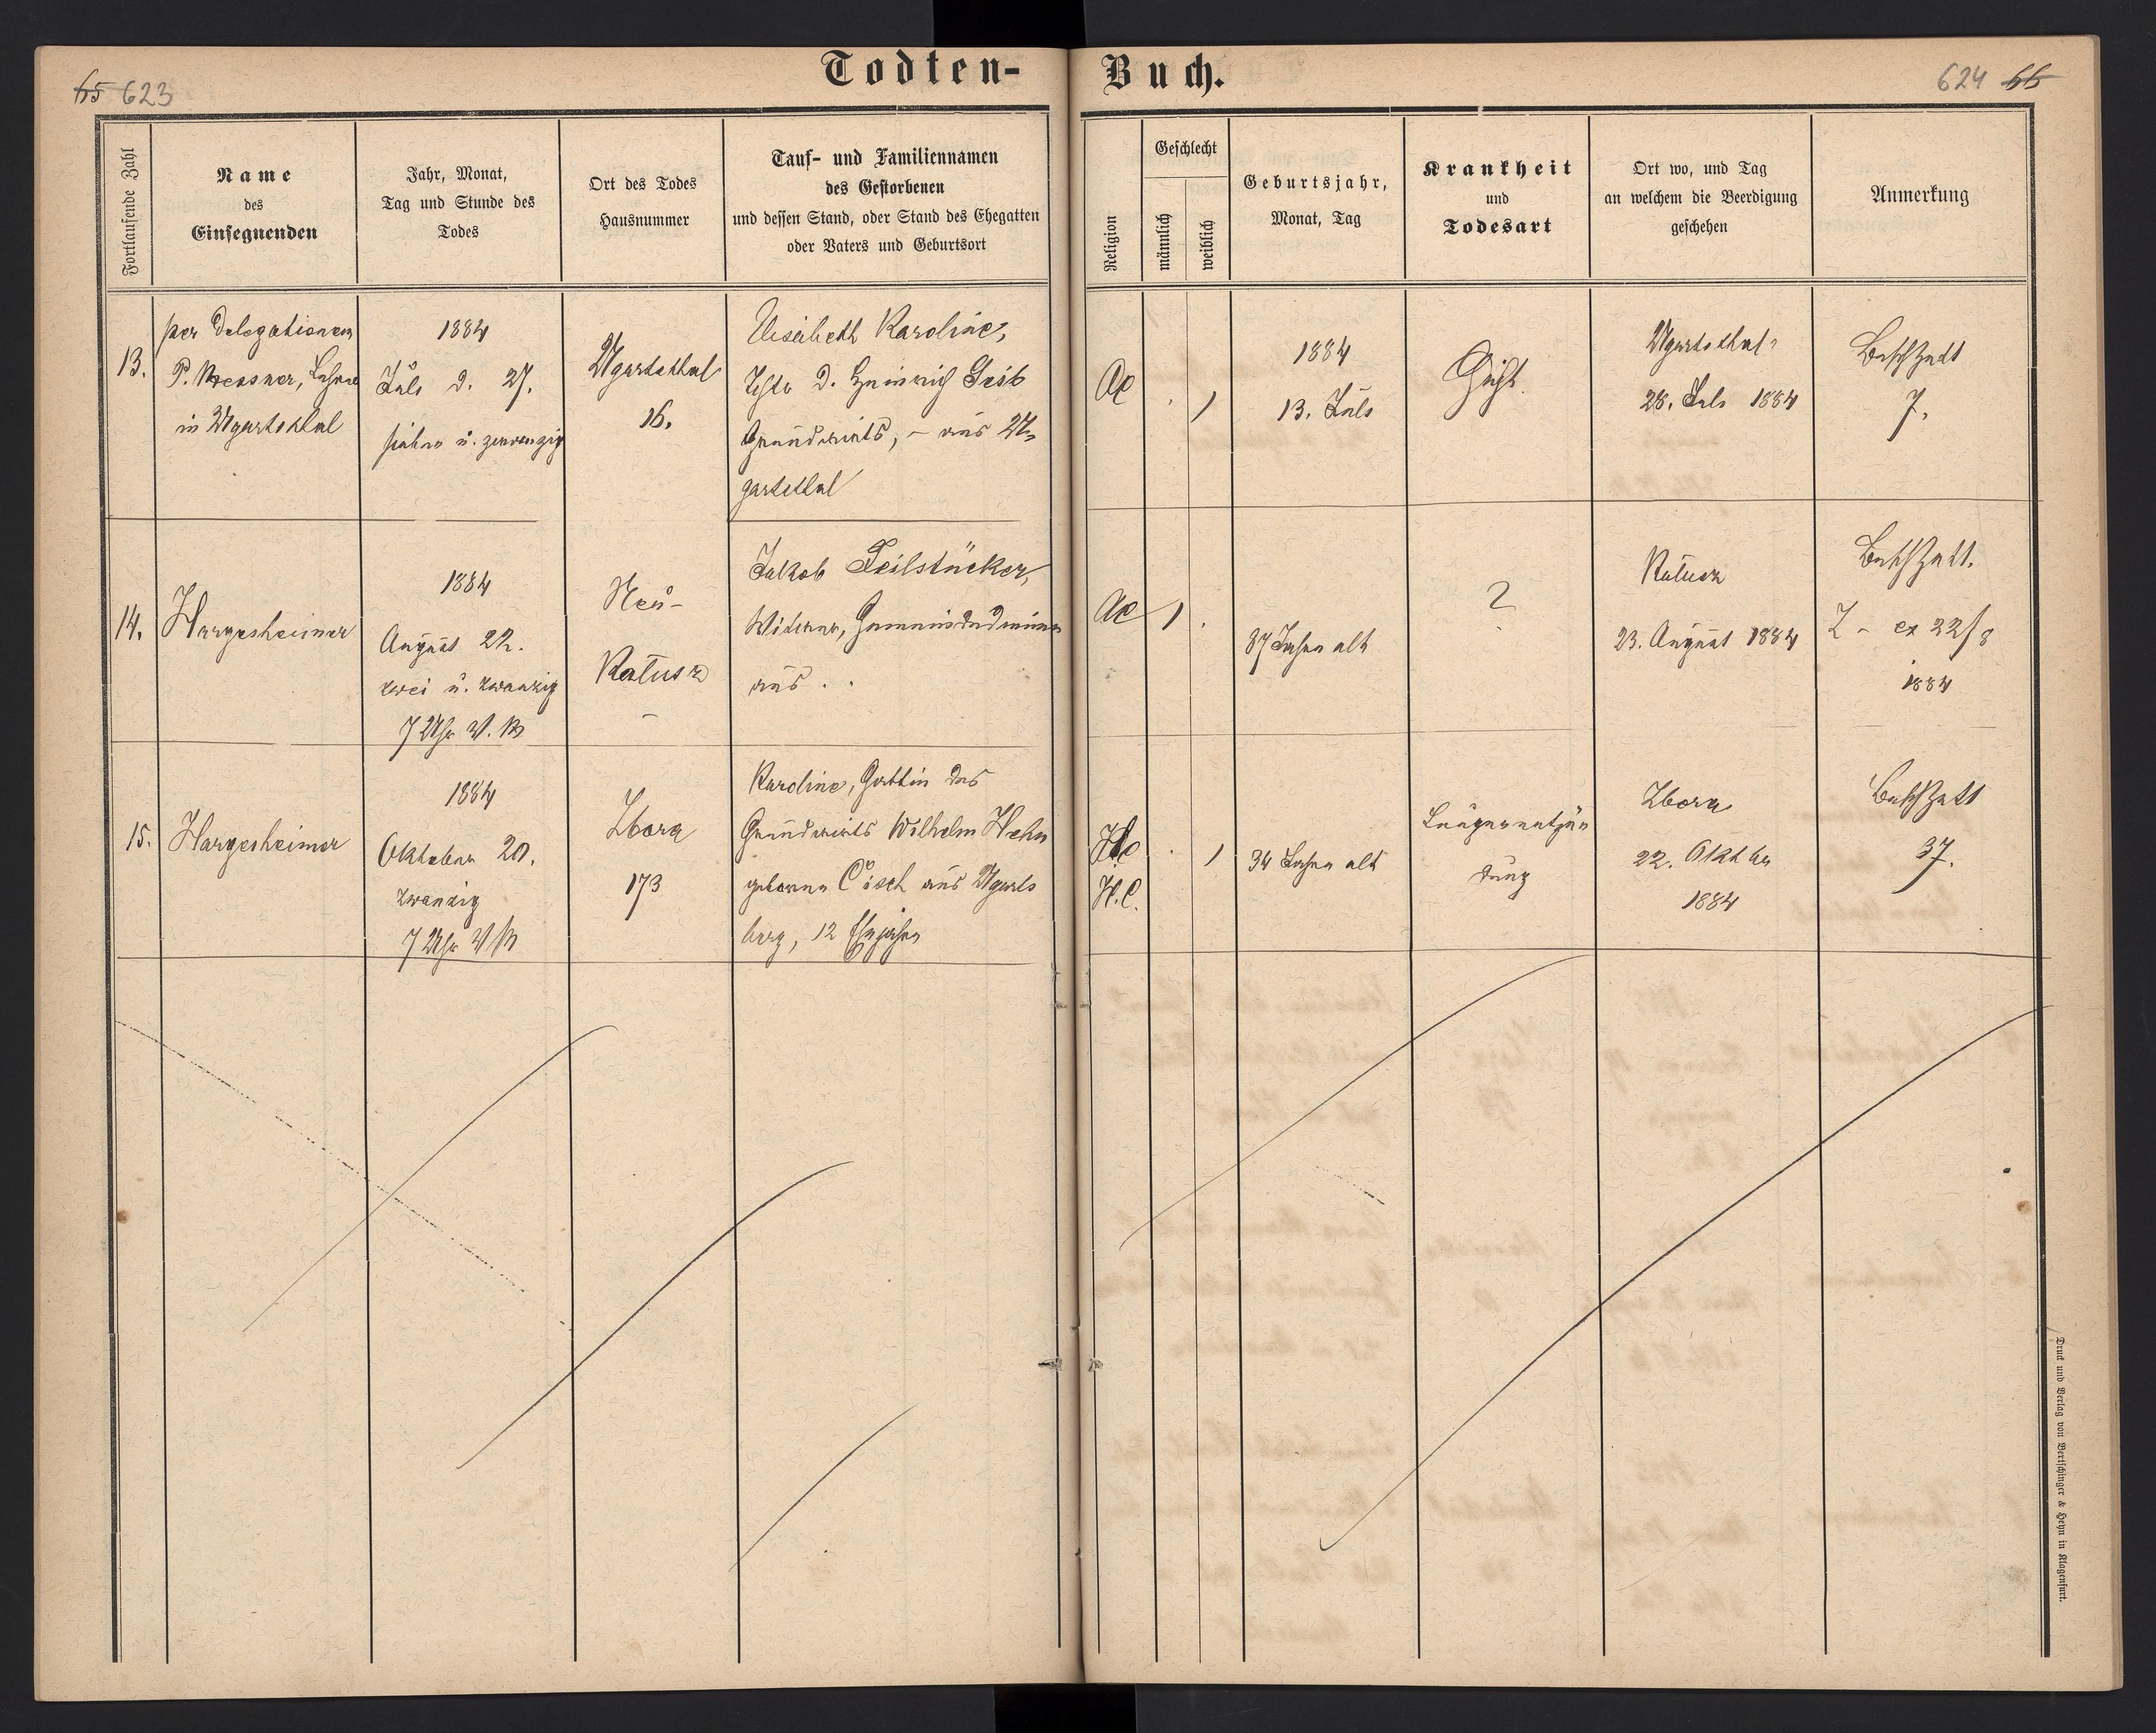 Todten-
65 623
Fortlaufende Zahl
Name
des
Einsegnenden
Jahr, Monat,
Tag und Stunde des
Todes
Ort des Todes
Hausnummer
Tauf- und Familiennamen
des Gestorbenen
und dessen Stand, oder Stand des Ehegatten
oder Vaters und Geburtsort
13.
per Delegationem
P. Messner, Lehrer
in Ugartsthal
1884
Juli d. 27.
sieben u. zwanzig
Ugartsthal
16.
Elisabeth Karoline,
d. Heinrich
Grundwirts, – aus U-
gartsthal
14.
Hargesheimer
1884
August 22.
zwei u. zwanzig
7 Uhr V. M
Neu-
Katusz
Jakob Teilstücker,
Witwer,
aus . .
15.
Hargesheimer
1884
Oktober 20.
zwanzig
7 Uhr VM
Zbora
173
Karoline, Gattin des
Grundwirts Wilhelm Hehn
geborne Cösch aus Ugarts
berg, 12 Ehejahre
Buch.
624 66
Religion
Geschlecht
männlich
weiblich
Geburtsjahr,
Monat, Tag
Krankheit
und
Todesart
Ort wo, und Tag
an welchem die Beerdigung
geschehen
Anmerkung
AC
1
1884
13. Juli
Gicht.
Ugartsthal
28. Juli 1884
Beschzett
7.
AC
1
87 Jahre alt
?
Katusz
23. August 1884
Beschzett.
Z – ex 22/8
1884
H.C.
1
34 Jahre alt
Lungenentzün
dung
Zbora
22. Oktober
1884
Beschzett
37.
Druck und Verlag von Bertschinger & Heyn in Klagenfurt.